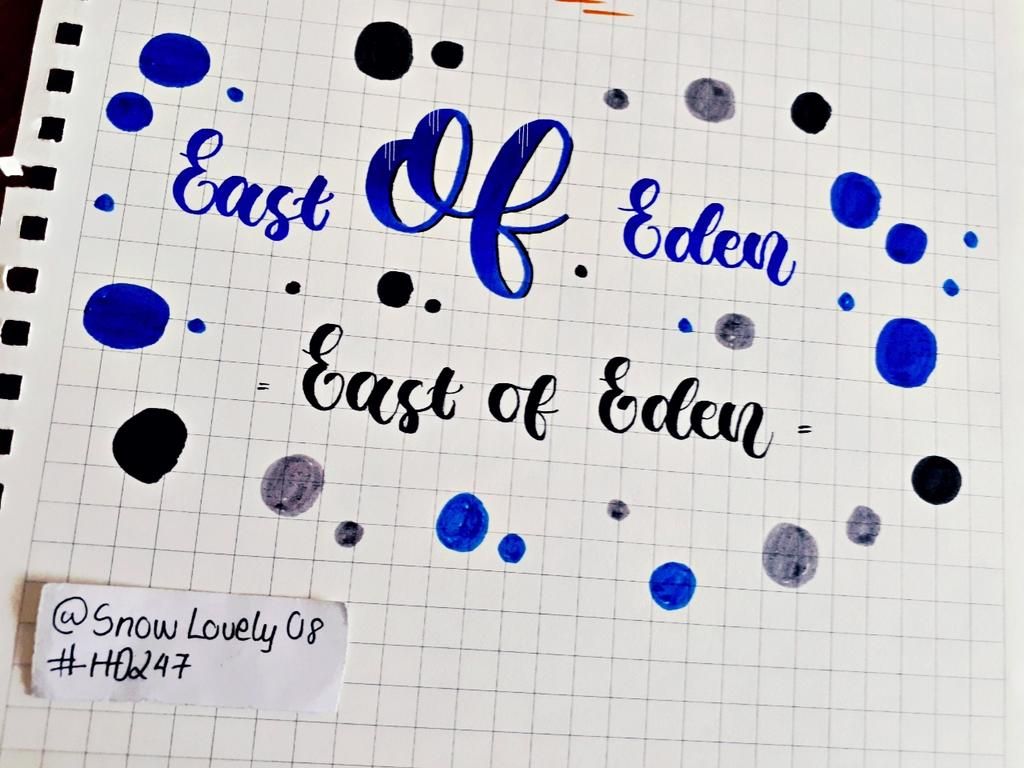 East Of Eden
= East of Eden =
@Snow Lovely 08
#HD247